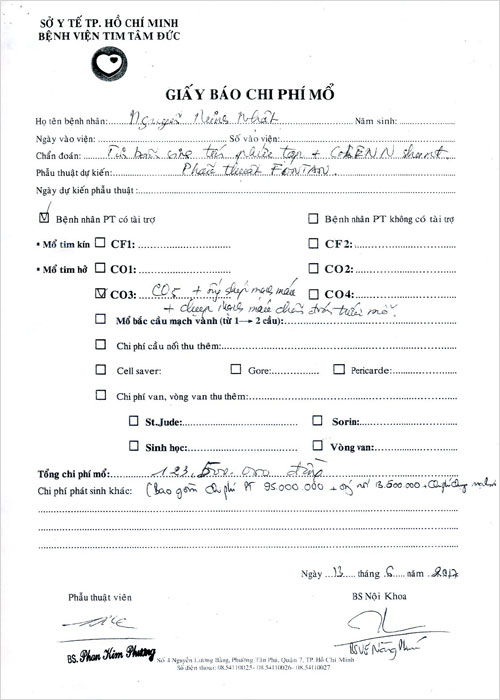 SỞ Y TẾ TP. HỒ CHÍ MINH
BỆNH VIỆN TIM TÂM ĐỨC
GIẤY BÁO CHI PHÍ MỔ
Họ tên bệnh nhân: Nguyễn Minh Nhật Năm sinh:
Ngày vào viện: Số vào viện:
Chẩn đoán: Tim bẩm sinh tím phức tạp + GLENN shunt.
Phẫu thuật dự kiến: Phẫu thuật FONTAN.
Ngày dự kiến phẫu thuật:
Bệnh nhân PT có tài trợ Bệnh nhân PT không có tài trợ
• Mổ tim kín CF1: CF2:
• Mổ tim hở CO1: CO2:
CO3: CO5 + ống ghép mạch máu CO4:
+ chụp mạch máu chẩn đoán trước mổ.
Mổ bắc cầu mạch vành (từ 1→ 2 cầu):
Chi phí cầu nối thu thêm:
Cell saver: Gore: Pericarde:
Chi phí van, vòng van thu thêm:
St.Jude: Sorin:
Sinh học: Vòng van:
Tổng chi phí mổ: 123.500.000 đồng
Chi phí phát sinh khác: (Bao gồm chi phí PT 95.000.000 + ống nối 13.500.000 + Chi phí chụp
Ngày 13 tháng 6 năm 2012
Phẫu thuật viên BS Nội Khoa
BS. Phan Kim Phương
Số 4 Nguyễn Lương Bằng, Phường Tân Phú, Quận 7, TP. Hồ Chí Minh
Số điện thoại: 08.54110025- 08.54110026- 08.54110027